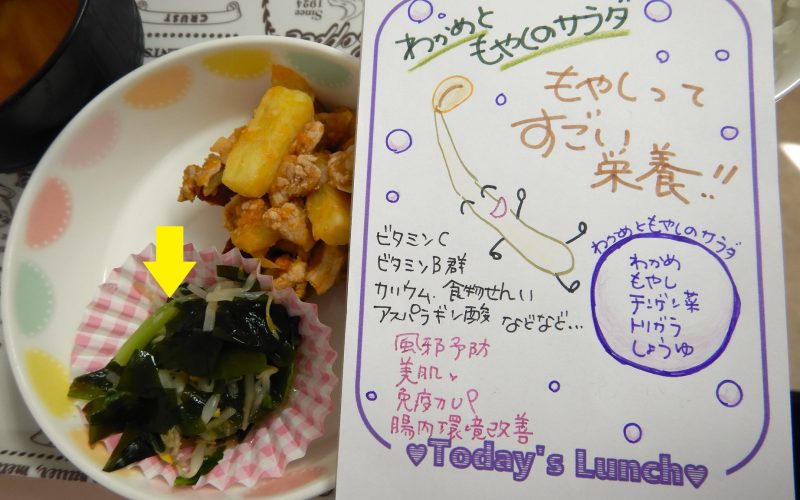 CRUST
Since
1924
Coffee
わかめと
もやしのサラダ
もやしって
すごい
栄養!!
ビタミンC
ビタミンB群
カリウム. 食物せんい
アスパラギン酸 などなど...
風邪予防
美肌
免疫力UP
腸内環境改善
わかめともやしのサラダ
わかめ
もやし
チンゲン菜
トリガラ
しょうゆ
♥Today's Lunch♥